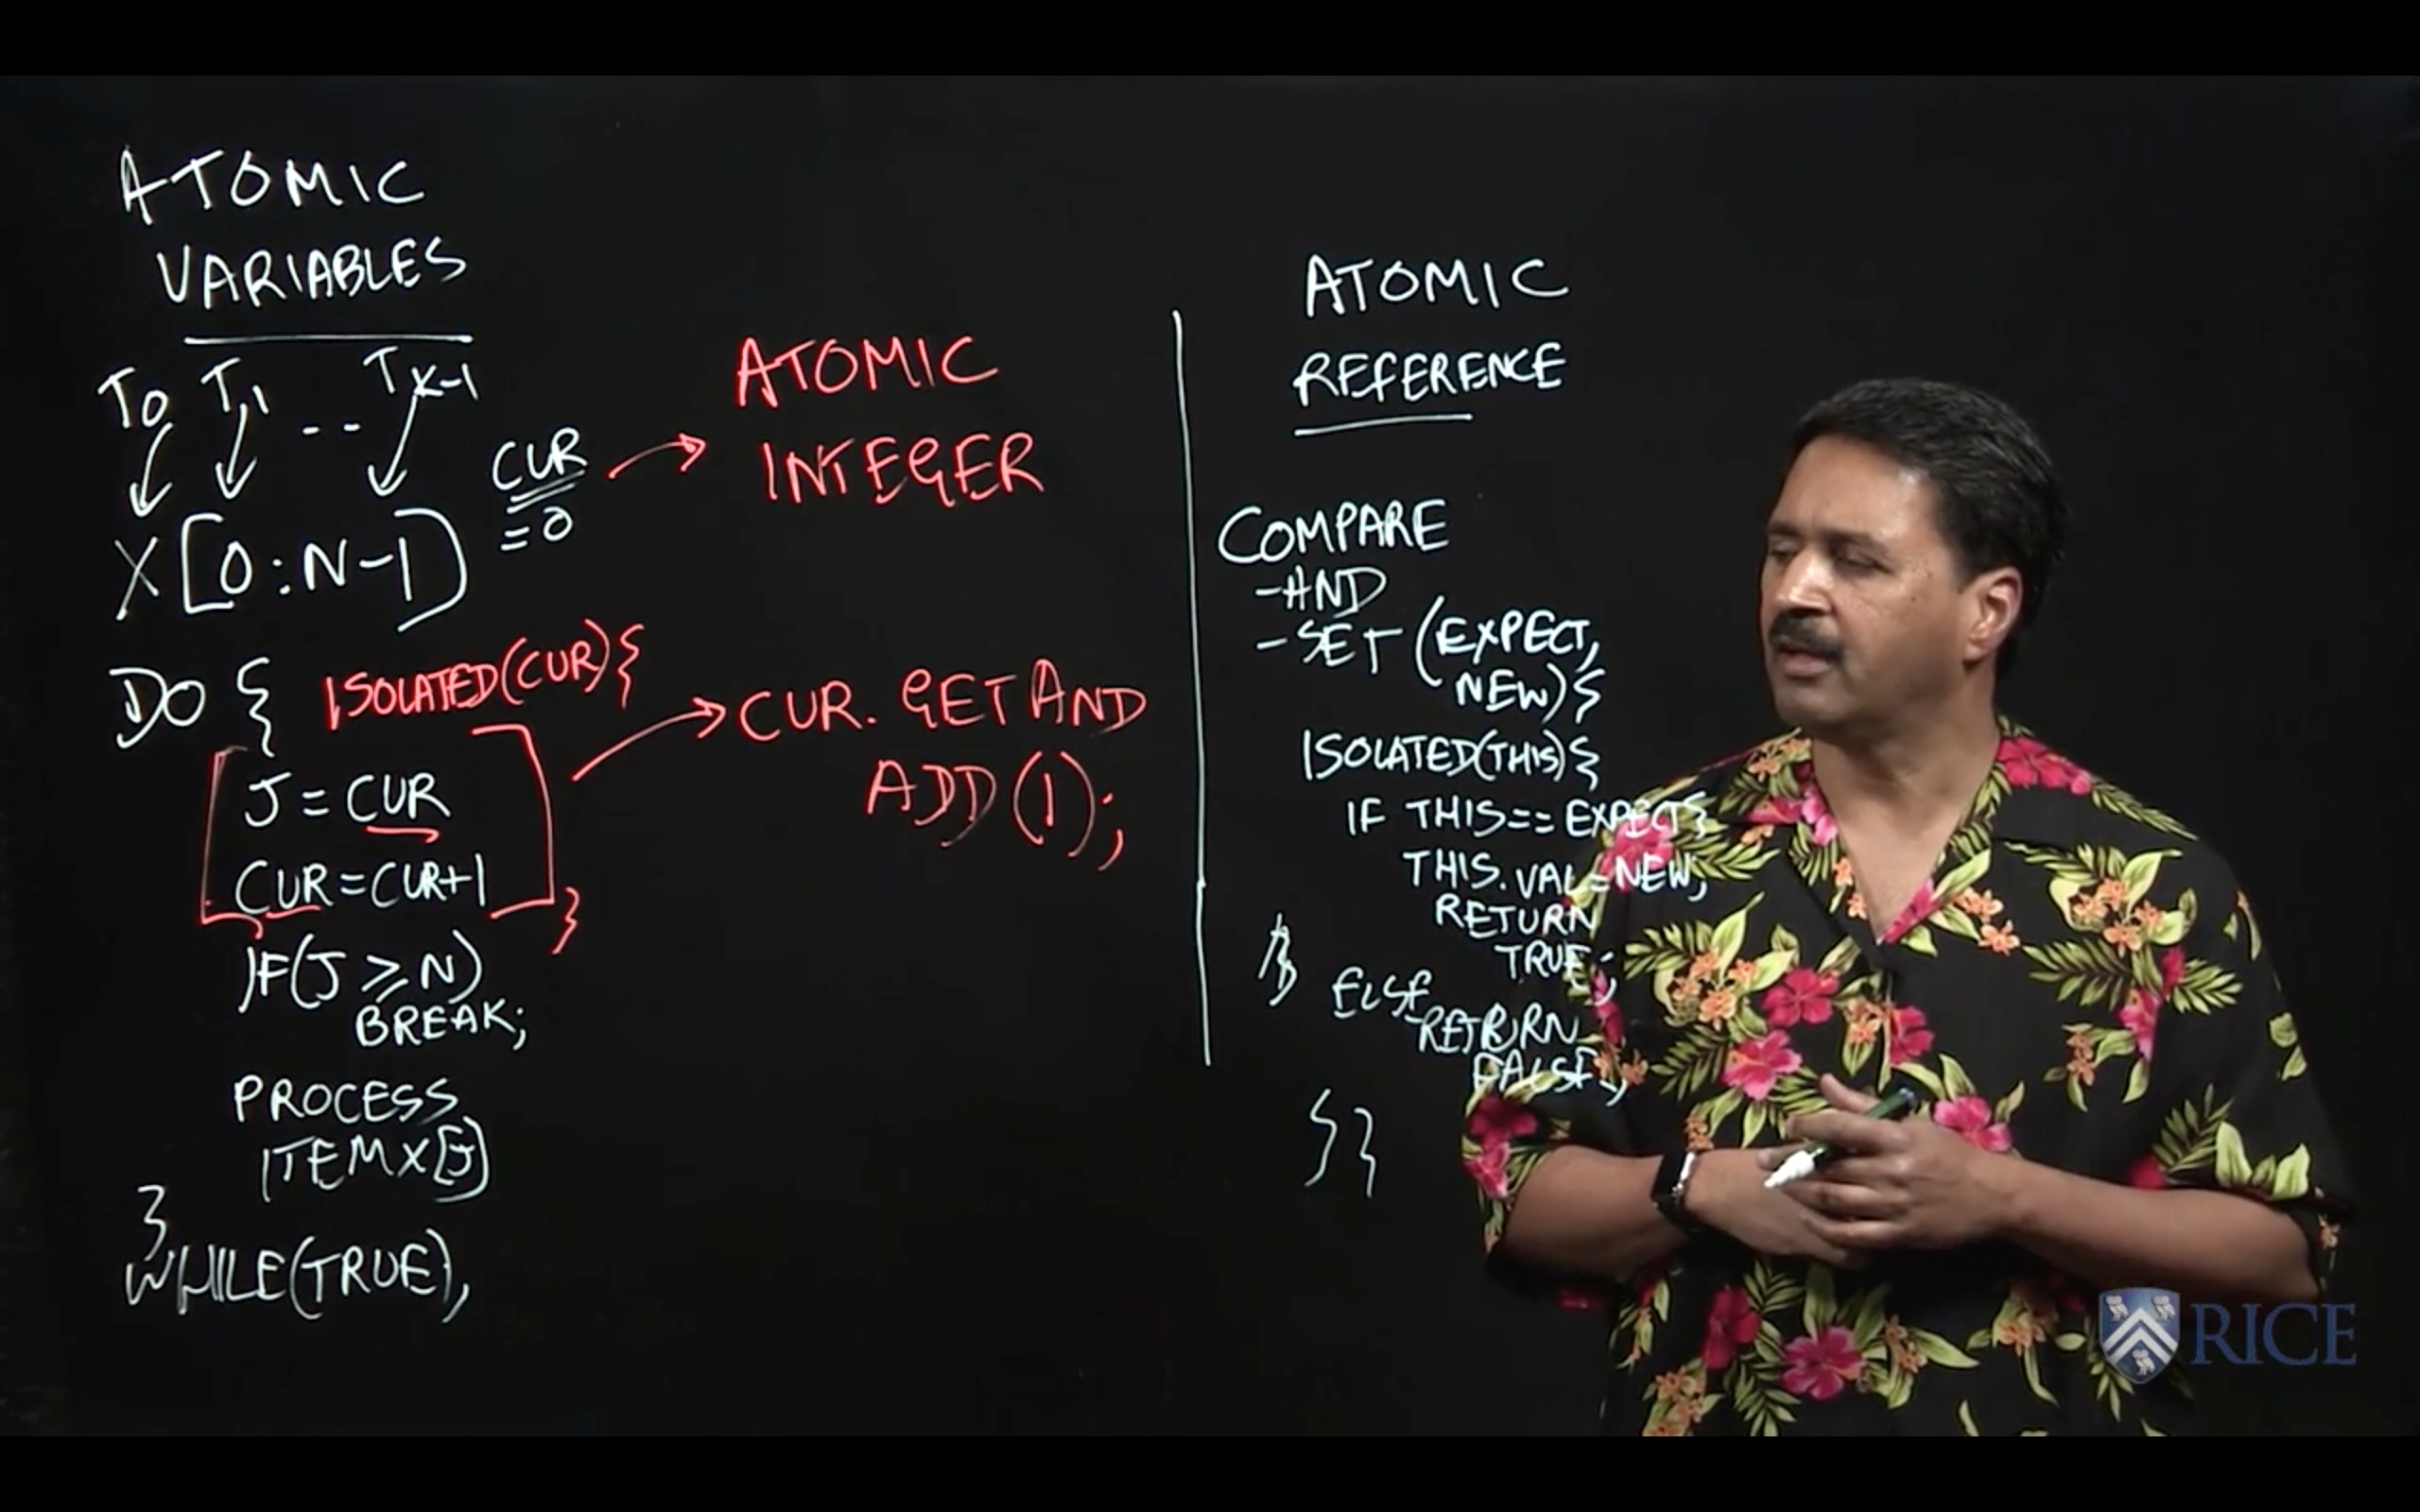 ATOMIC
VARIABLES
T0 T1 -- TK-1
CUR
=0
X[0:N-1]
DO { ISOLATED(CUR){
J = CUR
CUR=CUR+1
}
IF(J ≥ N)
BREAK;
PROCESS
ITEM X[J]
}
WHILE(TRUE),
ATOMIC
INTEGER
CUR. GET AND
ADD (1);
ATOMIC
REFERENCE
COMPARE
-AND
-SET (EXPECT,
NEW){
ISOLATED(THIS){
IF THIS==EXPECT{
THIS.VAL=NEW;
RETURN
TRUE;
} ELSE
RETURN
FALSE;
}}
RICE